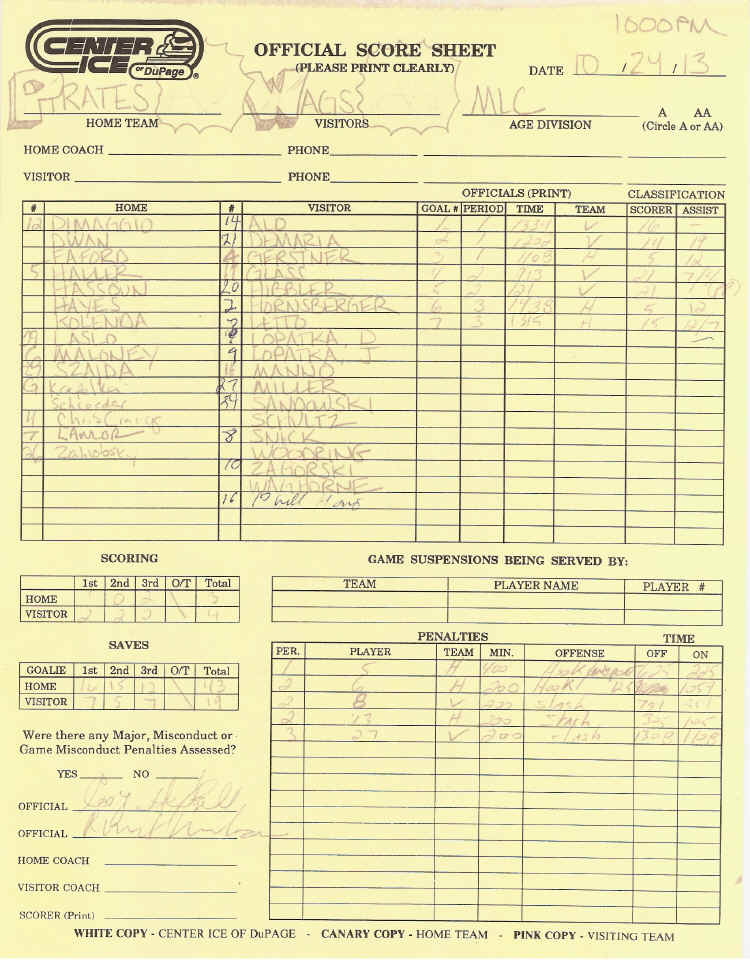 1000PM
CENTER ICE OF DuPAGE ®
OFFICIAL SCORE SHEET
(PLEASE PRINT CLEARLY)
DATE 10 / 24 / 13
PIRATES WAGS MLC A AA
HOME TEAM VISITORS AGE DIVISION (Circle A or AA)
HOME COACH PHONE
VISITOR PHONE
OFFICIALS (PRINT) CLASSIFICATION
# HOME # VISITOR GOAL # PERIOD TIME TEAM SCORER ASSIST
12 DIMAGGIO 14 ALO 1 1 1334 V 16 -
DWAN 21 DEMARIA 2 1 1200 V 14 19
FAFORD 4 GERSTNER 3 1 1103 H 5 12
5 HALLER 19 GLASS 4 2 913 V 21
HASSOUN 20 HIBBLER 5 2 121 V 21
HAYES 2 HORNSBERGER 6 3 1438 H 5 12
KOLENDA LETTO 7 3 1315 H 15 12/7
LASLO LOPATKA, D
MALONEY 9 LOPATKA, J
SZAIDA MANNO
G 27 MILLER
Schroeder 54 SANDOWSKI
4 Chris SCHULTZ
7 LAMOR 8 SNICK
26 WOODRING
10 ZAGORSKI
WAGHORNE
16 Phill
SCORING
1st 2nd 3rd O/T Total
HOME 1 0 2 3
VISITOR 2 2 4
GAME SUSPENSIONS BEING SERVED BY:
TEAM PLAYER NAME PLAYER #
SAVES
GOALIE 1st 2nd 3rd O/T Total
HOME 16 15 12 43
VISITOR 7 5 7 19
PENALTIES TIME
PER. PLAYER TEAM MIN. OFFENSE OFF ON
1 5 H 400 225
2 6 H 200 Hook 1054
2 8 V 200 slash
2 13 H 200 Slash 325 125
3 27 V 200 slash 1308 1108
Were there any Major, Misconduct or
Game Misconduct Penalties Assessed?
YES NO
OFFICIAL
OFFICIAL
HOME COACH
VISITOR COACH
SCORER (Print)
WHITE COPY - CENTER ICE OF DuPAGE - CANARY COPY - HOME TEAM - PINK COPY - VISITING TEAM